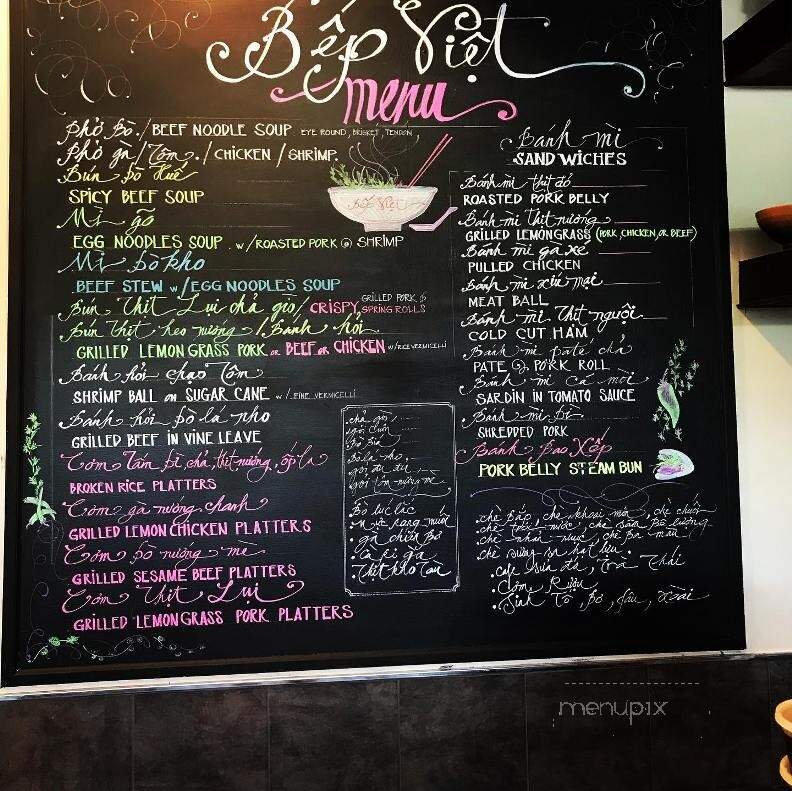 Bếp Việt
menu
Phở Bò. / BEEF NOODLE SOUP EYE ROUND, BRISKET, TENDON,
Phở gà / Tôm. / CHICKEN / SHRIMP.
Bún bò Huế
SPICY BEEF SOUP
Mì
EGG NOODLES SOUP. w/ ROASTED PORK @ SHRIMP
Mì bò kho
BEEF STEW w/ EGG NOODLES SOUP
Bún Thịt Lui chả giò / CRISPY GRILLED PORK & SPRING ROLLS
Bún thịt heo nướng /. Bánh hỏi
GRILLED LEMON GRASS PORK OR BEEF OR CHICKEN w/ RICE VERMICELLI
Bánh hỏi chạo Tôm
SHRIMP BALL on SUGAR CANE w/. FINE VERMICELLI
Bánh hỏi bò lá nho
GRILLED BEEF IN VINE LEAVE
Cơm Tấm bì chả, thịt nướng, ốp la
BROKEN RICE PLATTERS
Cơm gà nướng chanh
GRILLED LEMON CHICKEN PLATTERS
Cơm bò nướng mè
GRILLED SESAME BEEF PLATTERS
Cơm Thịt Lui
GRILLED LEMONGRASS PORK PLATTERS
Bếp Việt
Bánh mì
SANDWICHES
Bánh mì thịt đỏ
ROASTED PORK BELLY
Bánh mì Thịt nướng
GRILLED LEMONGRASS (PORK, CHICKEN, OR BEEF)
Bánh mì gà xé
PULLED CHICKEN
Bánh mì xíu mại
MEAT BALL
Bánh mì thịt nguội
COLD CUT HAM
Bánh mì paté chả
PATE @ PORK ROLL
Bánh mì cá mòi
SARDIN IN TOMATO SAUCE
Bánh mì Bì
SHREDDED PORK
Bánh Bao Xếp
PORK BELLY STEAM BUN
.chả giò
.gỏi cuốn
.Bò lá nho
.gỏi đu đủ
.Bò lúc lắc
.Mực rang muối
.gà chiên Bơ
.Cà ri gà
.Thịt kho Tàu
.chè Bắp, chè khoai môn, chè chuối
.chè
.chè
.chè sương sa hạt lựu.
.cafe sữa đá, trà Thái
.Cơm Rượu
.Sinh Tố, Bơ, dâu, Xoài
menupix